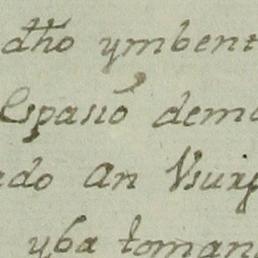 dho ymbent
espasio dema
ado an Vsurp
yba toman